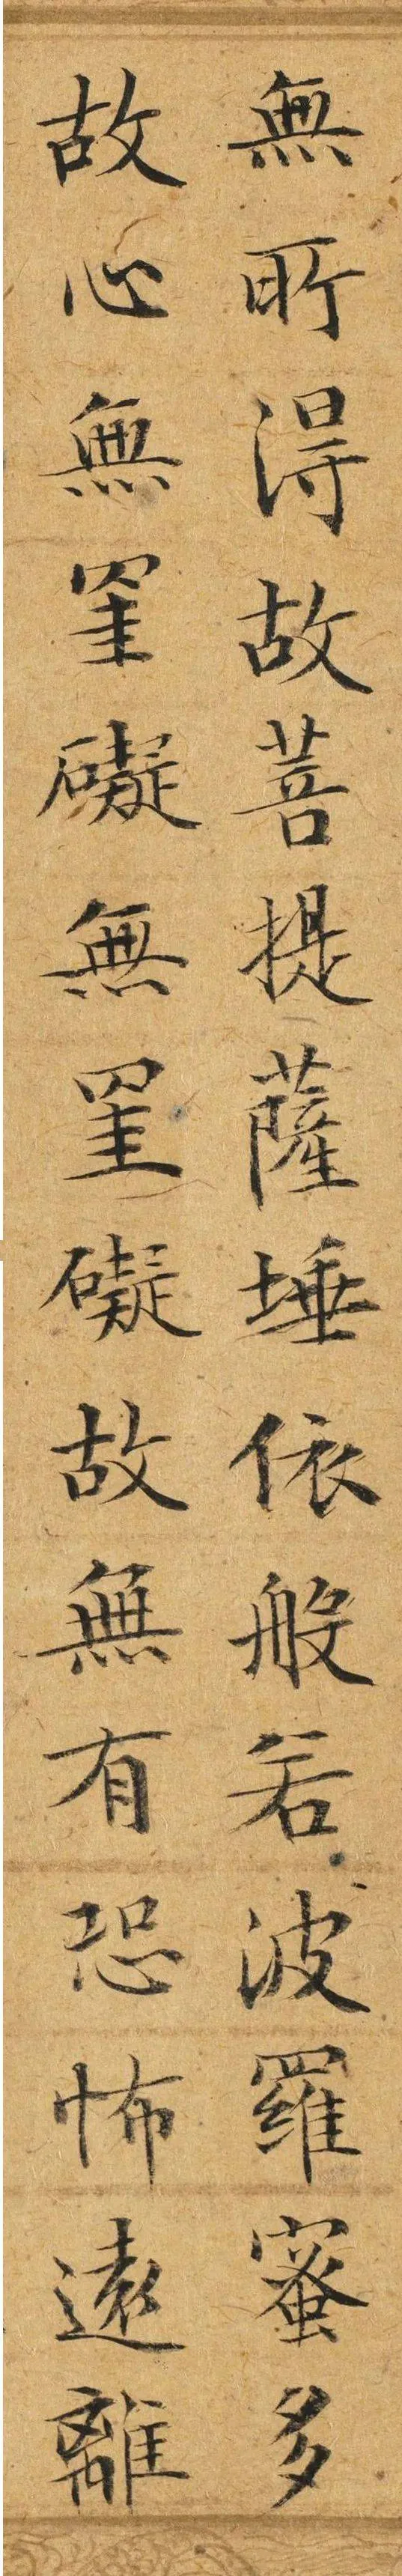 無所得故菩提薩埵依般若波羅蜜多
故心無罣礙無罣礙故無有恐怖遠離